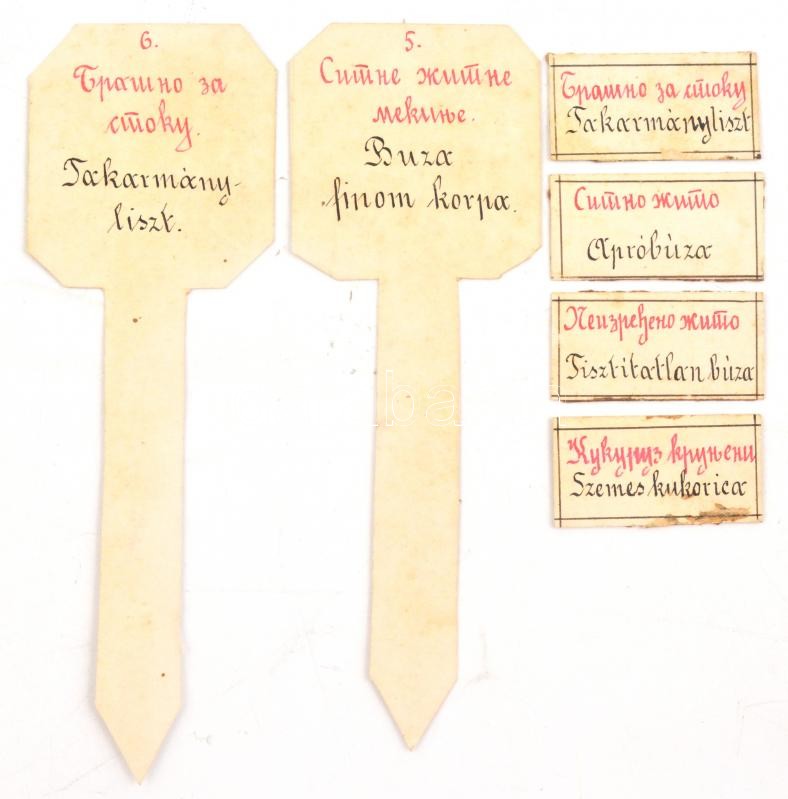 6.
Брашно за
стоку.
Takarmány-
liszt.
5.
Ситне житне
мекиње.
Buza
finom korpa.
Брашно за стоку
Takarmányliszt
Ситно жито
Apróbúza
Неизређено жито
Tisztitatlan búza
Кукуруз круњени
Szemes kukorica